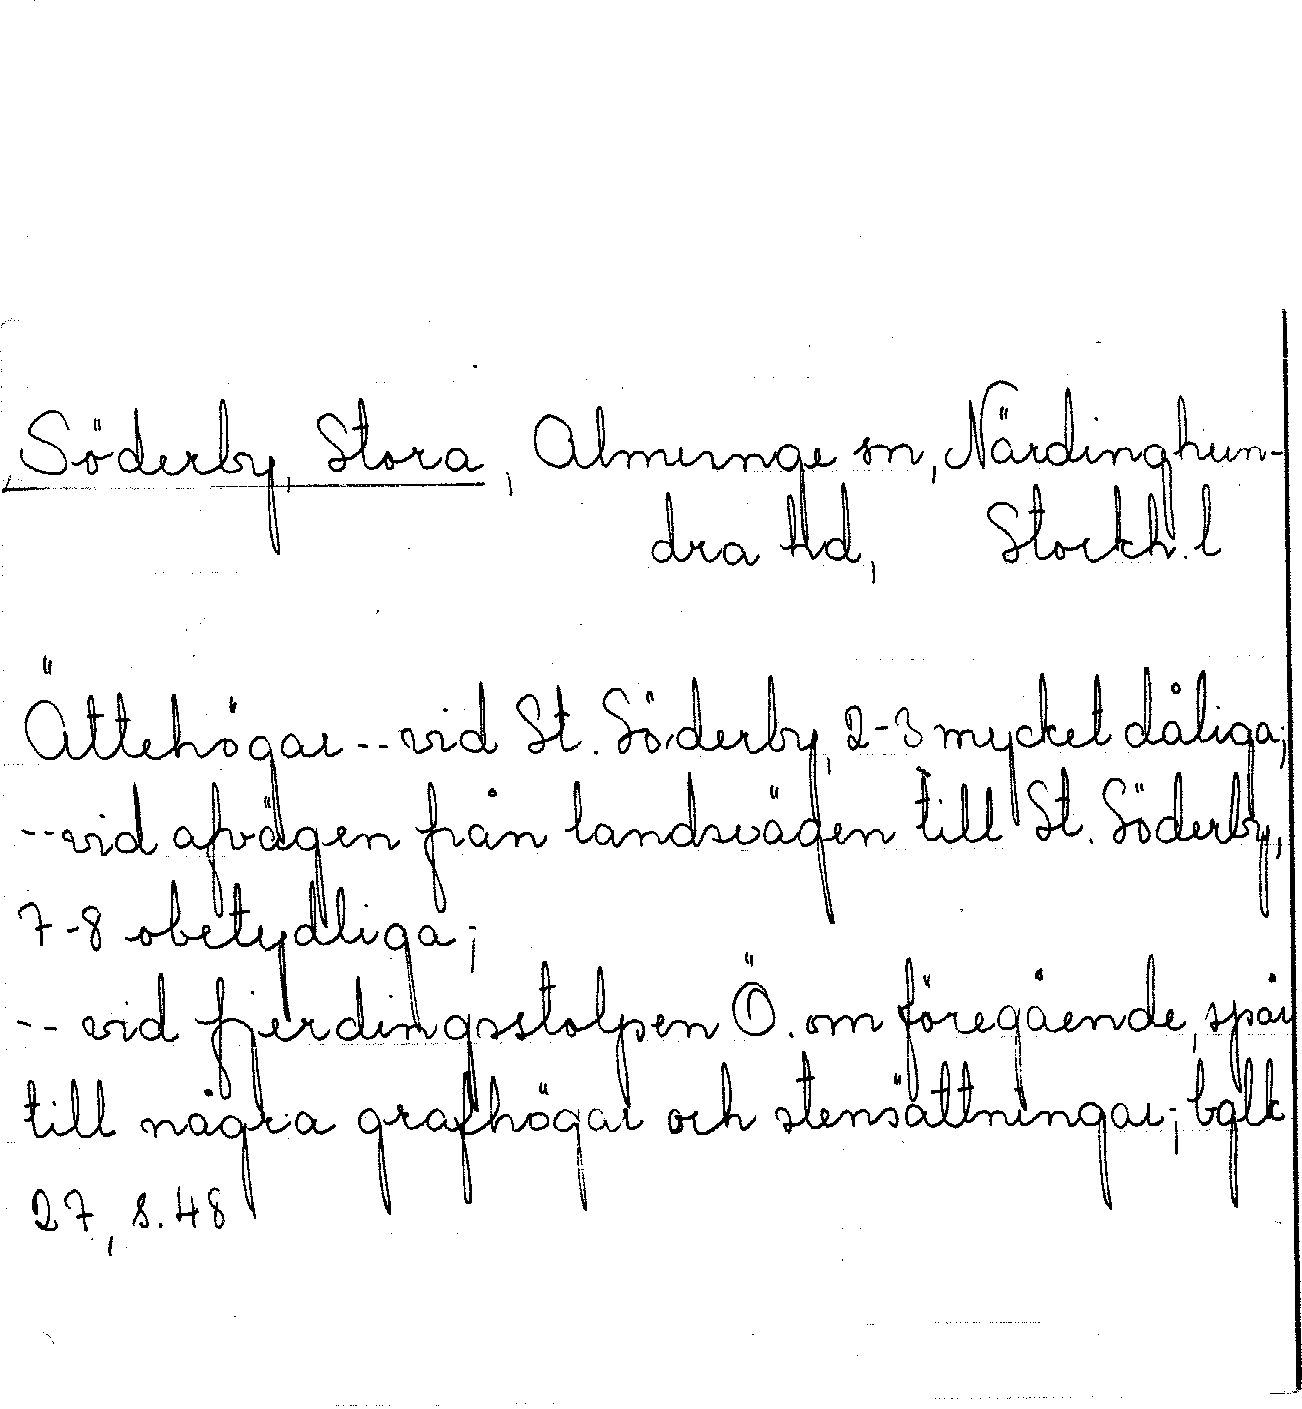 Söderby, Stora, Almunge sn, Närdinghun-
dra Hd, Stockh. l
Ättehögar -- vid St. Söderby, 2-3 mycket dåliga;
-- vid afvägen från landsvägen till St. Söderby,
7-8 obetydliga;
-- vid fjerdingsstolpen Ö. om föregående, spår
till några grafhögar och stensättningar; bglk
27, s. 48